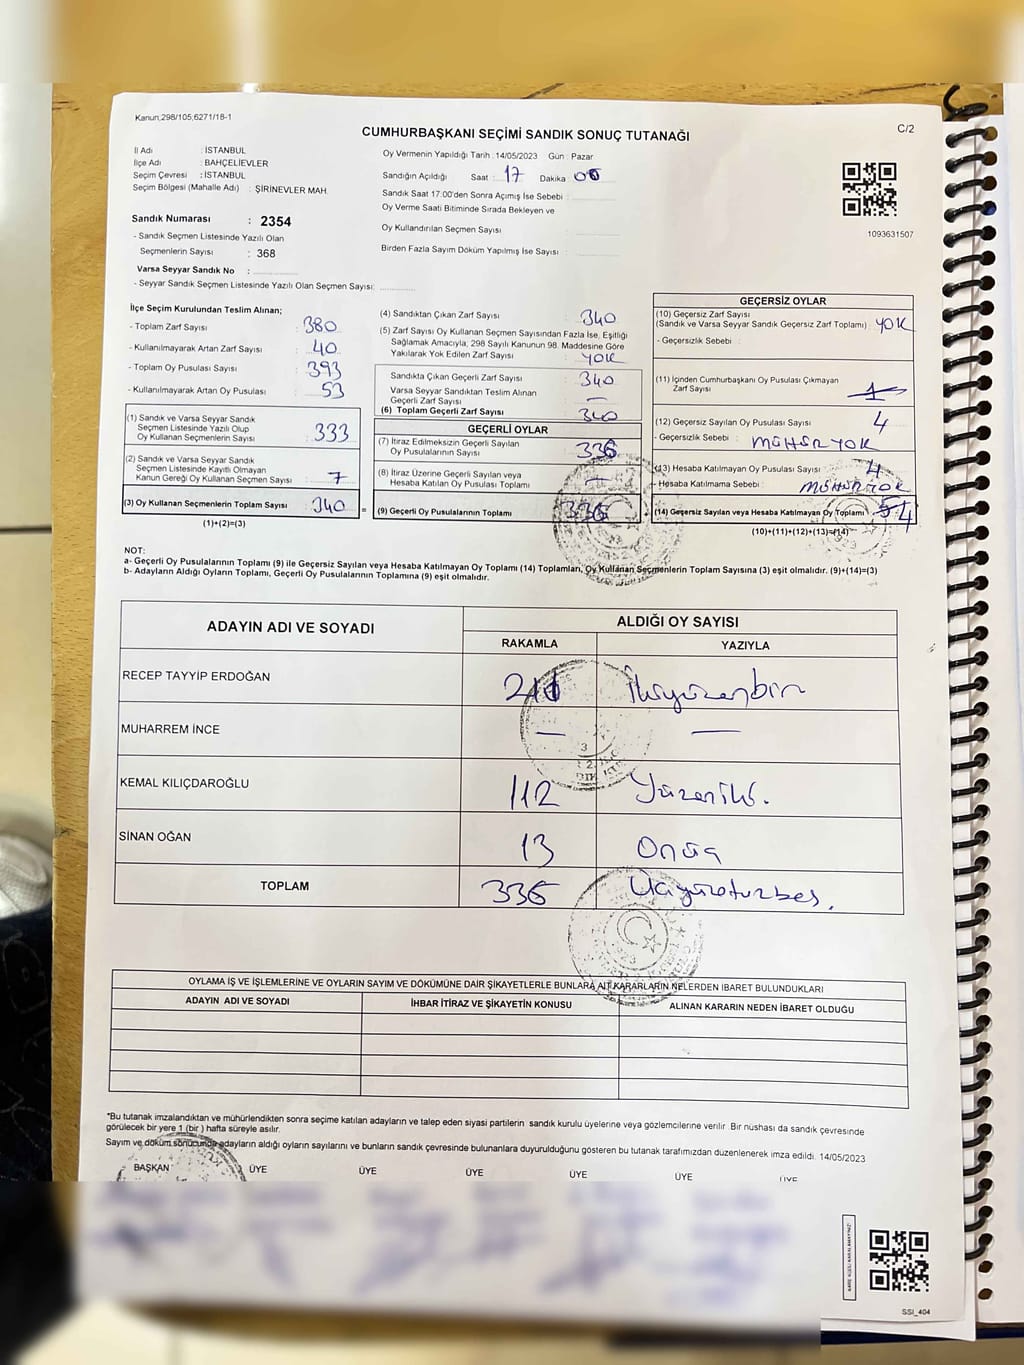 Kanun,298/105;6271/18-1
CUMHURBAŞKANI SEÇİMİ SANDIK SONUÇ TUTANAĞI
C/2
İl Adı : İSTANBUL
İlçe Adı : BAHÇELİEVLER
Seçim Çevresi : İSTANBUL
Seçim Bölgesi (Mahalle Adı) : ŞİRİNEVLER MAH.
Sandık Numarası : 2354
- Sandık Seçmen Listesinde Yazılı Olan
Seçmenlerin Sayısı : 368
Varsa Seyyar Sandık No :
- Seyyar Sandık Seçmen Listesinde Yazılı Olan Seçmen Sayısı:
Oy Vermenin Yapıldığı Tarih : 14/05/2023 Gün : Pazar
Sandığın Açıldığı Saat : 17 Dakika 00
Sandık Saat 17:00'den Sonra Açımış İse Sebebi :
Oy Verme Saati Bitiminde Sırada Bekleyen ve
Oy Kullandırılan Seçmen Sayısı :
Birden Fazla Sayım Döküm Yapılmış İse Sayısı :
1093631507
İlçe Seçim Kurulundan Teslim Alınan;
- Toplam Zarf Sayısı : 380
- Kullanılmayarak Artan Zarf Sayısı : 40
- Toplam Oy Pusulası Sayısı : 393
- Kullanılmayarak Artan Oy Pusulası : 53
(1) Sandık ve Varsa Seyyar Sandık
Seçmen Listesinde Yazılı Olup
Oy Kullanan Seçmenlerin Sayısı : 333
(2) Sandık ve Varsa Seyyar Sandık
Seçmen Listesinde Kayıtlı Olmayan
Kanun Gereği Oy Kullanan Seçmen Sayısı : 7
(3) Oy Kullanan Seçmenlerin Toplam Sayısı : 340
(1)+(2)=(3)
(4) Sandıktan Çıkan Zarf Sayısı : 340
(5) Zarf Sayısı Oy Kullanan Seçmen Sayısından Fazla İse, Eşitliği
Sağlamak Amacıyla, 298 Sayılı Kanunun 98. Maddesine Göre
Yakılarak Yok Edilen Zarf Sayısı : YOK
Sandıkta Çıkan Geçerli Zarf Sayısı : 340
Varsa Seyyar Sandıktan Teslim Alınan
Geçerli Zarf Sayısı : —
(6) Toplam Geçerli Zarf Sayısı : 340
GEÇERLİ OYLAR
(7) İtiraz Edilmeksizin Geçerli Sayılan
Oy Pusulalarının Sayısı : 336
(8) İtiraz Üzerine Geçerli Sayılan veya
Hesaba Katılan Oy Pusulası Toplamı : —
= (9) Geçerli Oy Pusulalarının Toplamı 336
GEÇERSİZ OYLAR
(10) Geçersiz Zarf Sayısı
(Sandık ve Varsa Seyyar Sandık Geçersiz Zarf Toplamı) : YOK
- Geçersizlik Sebebi :
(11) İçinden Cumhurbaşkanı Oy Pusulası Çıkmayan
Zarf Sayısı
(12) Geçersiz Sayılan Oy Pusulası Sayısı : 4
- Geçersizlik Sebebi : MÜHÜR YOK
(13) Hesaba Katılmayan Oy Pusulası Sayısı : 4
- Hesaba Katılmama Sebebi : MÜHÜR YOK
(14) Geçersiz Sayılan veya Hesaba Katılmayan Oy Toplamı 4
(10)+(11)+(12)+(13)=(14)
NOT:
a- Geçerli Oy Pusulalarının Toplamı (9) ile Geçersiz Sayılan veya Hesaba Katılmayan Oy Toplamı (14) Toplamları, Oy Kullanan Seçmenlerin Toplam Sayısına (3) eşit olmalıdır. (9)+(14)=(3)
b- Adayların Aldığı Oyların Toplamı, Geçerli Oy Pusulalarının Toplamına (9) eşit olmalıdır.
ADAYIN ADI VE SOYADI ALDIĞI OY SAYISI
RAKAMLA YAZIYLA
RECEP TAYYİP ERDOĞAN 211 İkiyüzonbir
MUHARREM İNCE — —
KEMAL KILIÇDAROĞLU 112 Yüzoniki.
SİNAN OĞAN 13 Onüç
TOPLAM 336
OYLAMA İŞ VE İŞLEMLERİNE VE OYLARIN SAYIM VE DÖKÜMÜNE DAİR ŞİKAYETLERLE BUNLARA AİT KARARLARIN NELERDEN İBARET BULUNDUKLARI
ADAYIN ADI VE SOYADI İHBAR İTİRAZ VE ŞİKAYETİN KONUSU ALINAN KARARIN NEDEN İBARET OLDUĞU
*Bu tutanak imzalandıktan ve mühürlendikten sonra seçime katılan adayların ve talep eden siyasi partilerin sandık kurulu üyelerine veya gözlemcilerine verilir. Bir nüshası da sandık çevresinde
görülecek bir yere 1 (bir ) hafta süreyle asılır.
Sayım ve döküm sonucunda adayların aldığı oyların sayılarını ve bunların sandık çevresinde bulunanlara duyurulduğunu gösteren bu tutanak tarafımızdan düzenlenerek imza edildi. 14/05/2023
BAŞKAN ÜYE ÜYE ÜYE ÜYE ÜYE ÜYE
SSI_404